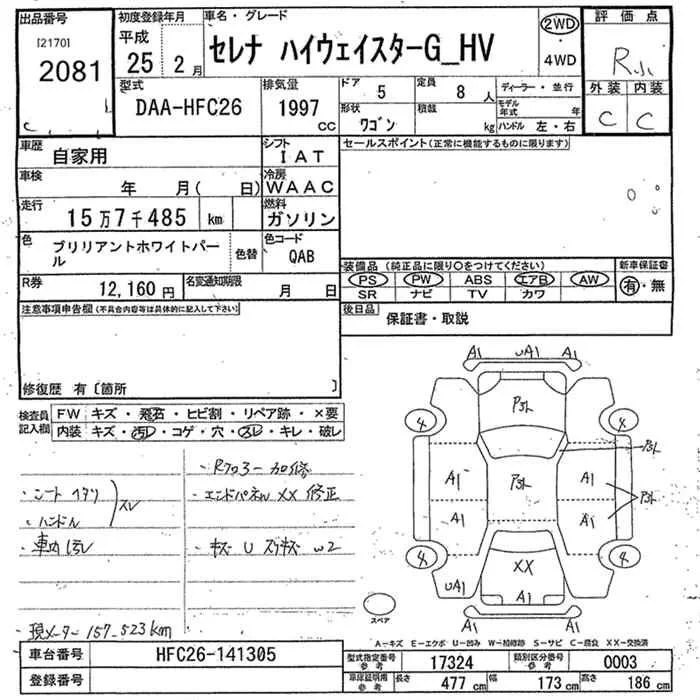 出品番号
[2170]
2081
初度登録年月
平成
25 2月
車名・グレード
セレナ ハイウェイスターG_HV
2WD
・
4WD
評価点
外装 内装
C C
型式
DAA-HFC26
排気量
1997 cc
ドア
5
定員
8 人
形状
ワゴン
積載
kg
ディーラー・並行
モデル年式 年
ハンドル 左・右
車歴
自家用
シフト
IAT
車検
年 月( 日)
冷房
WAAC
走行
15万7千485 km
燃料
ガソリン
色
ブリリアントホワイトパール
色替
色コード
QAB
R券
12,160 円
名変通知期限
月 日
セールスポイント(正常に機能するものに限ります)
装備品(純正品に限り○をつけてください)
新車保証書
PS PW ABS エアB AW
SR ナビ TV カワ
有・無
後日品
保証書・取説
注意事項申告欄(不具合内容等は具体的に記入して下さい)
修復歴 有〔箇所 〕
検査員記入欄
FW キズ・飛石・ヒビ割・リペア跡・×要
内装 キズ・汚レ・コゲ・穴・スレ・キレ・破レ
・シート ヘタリ
・ハンドル スレ
・車内汚レ
・エンドパネル XX 修正
・キズ U スリキズ W2
現メーター 157,523km
A1 UA1 A1
4 4
A1 A1
A1 A1
4 4
XX
UA1 A1
A1 A1
スペア
A-キズ E-エクボ U-凹み W-補修跡 S-サビ C-腐食 XX-交換済
車台番号
HFC26-141305
登録番号
型式指定番号 参考
17324
類別区分番号 参考
0003
車庫証明用 参考
長さ 477 cm
幅 173 cm
高さ 186 cm